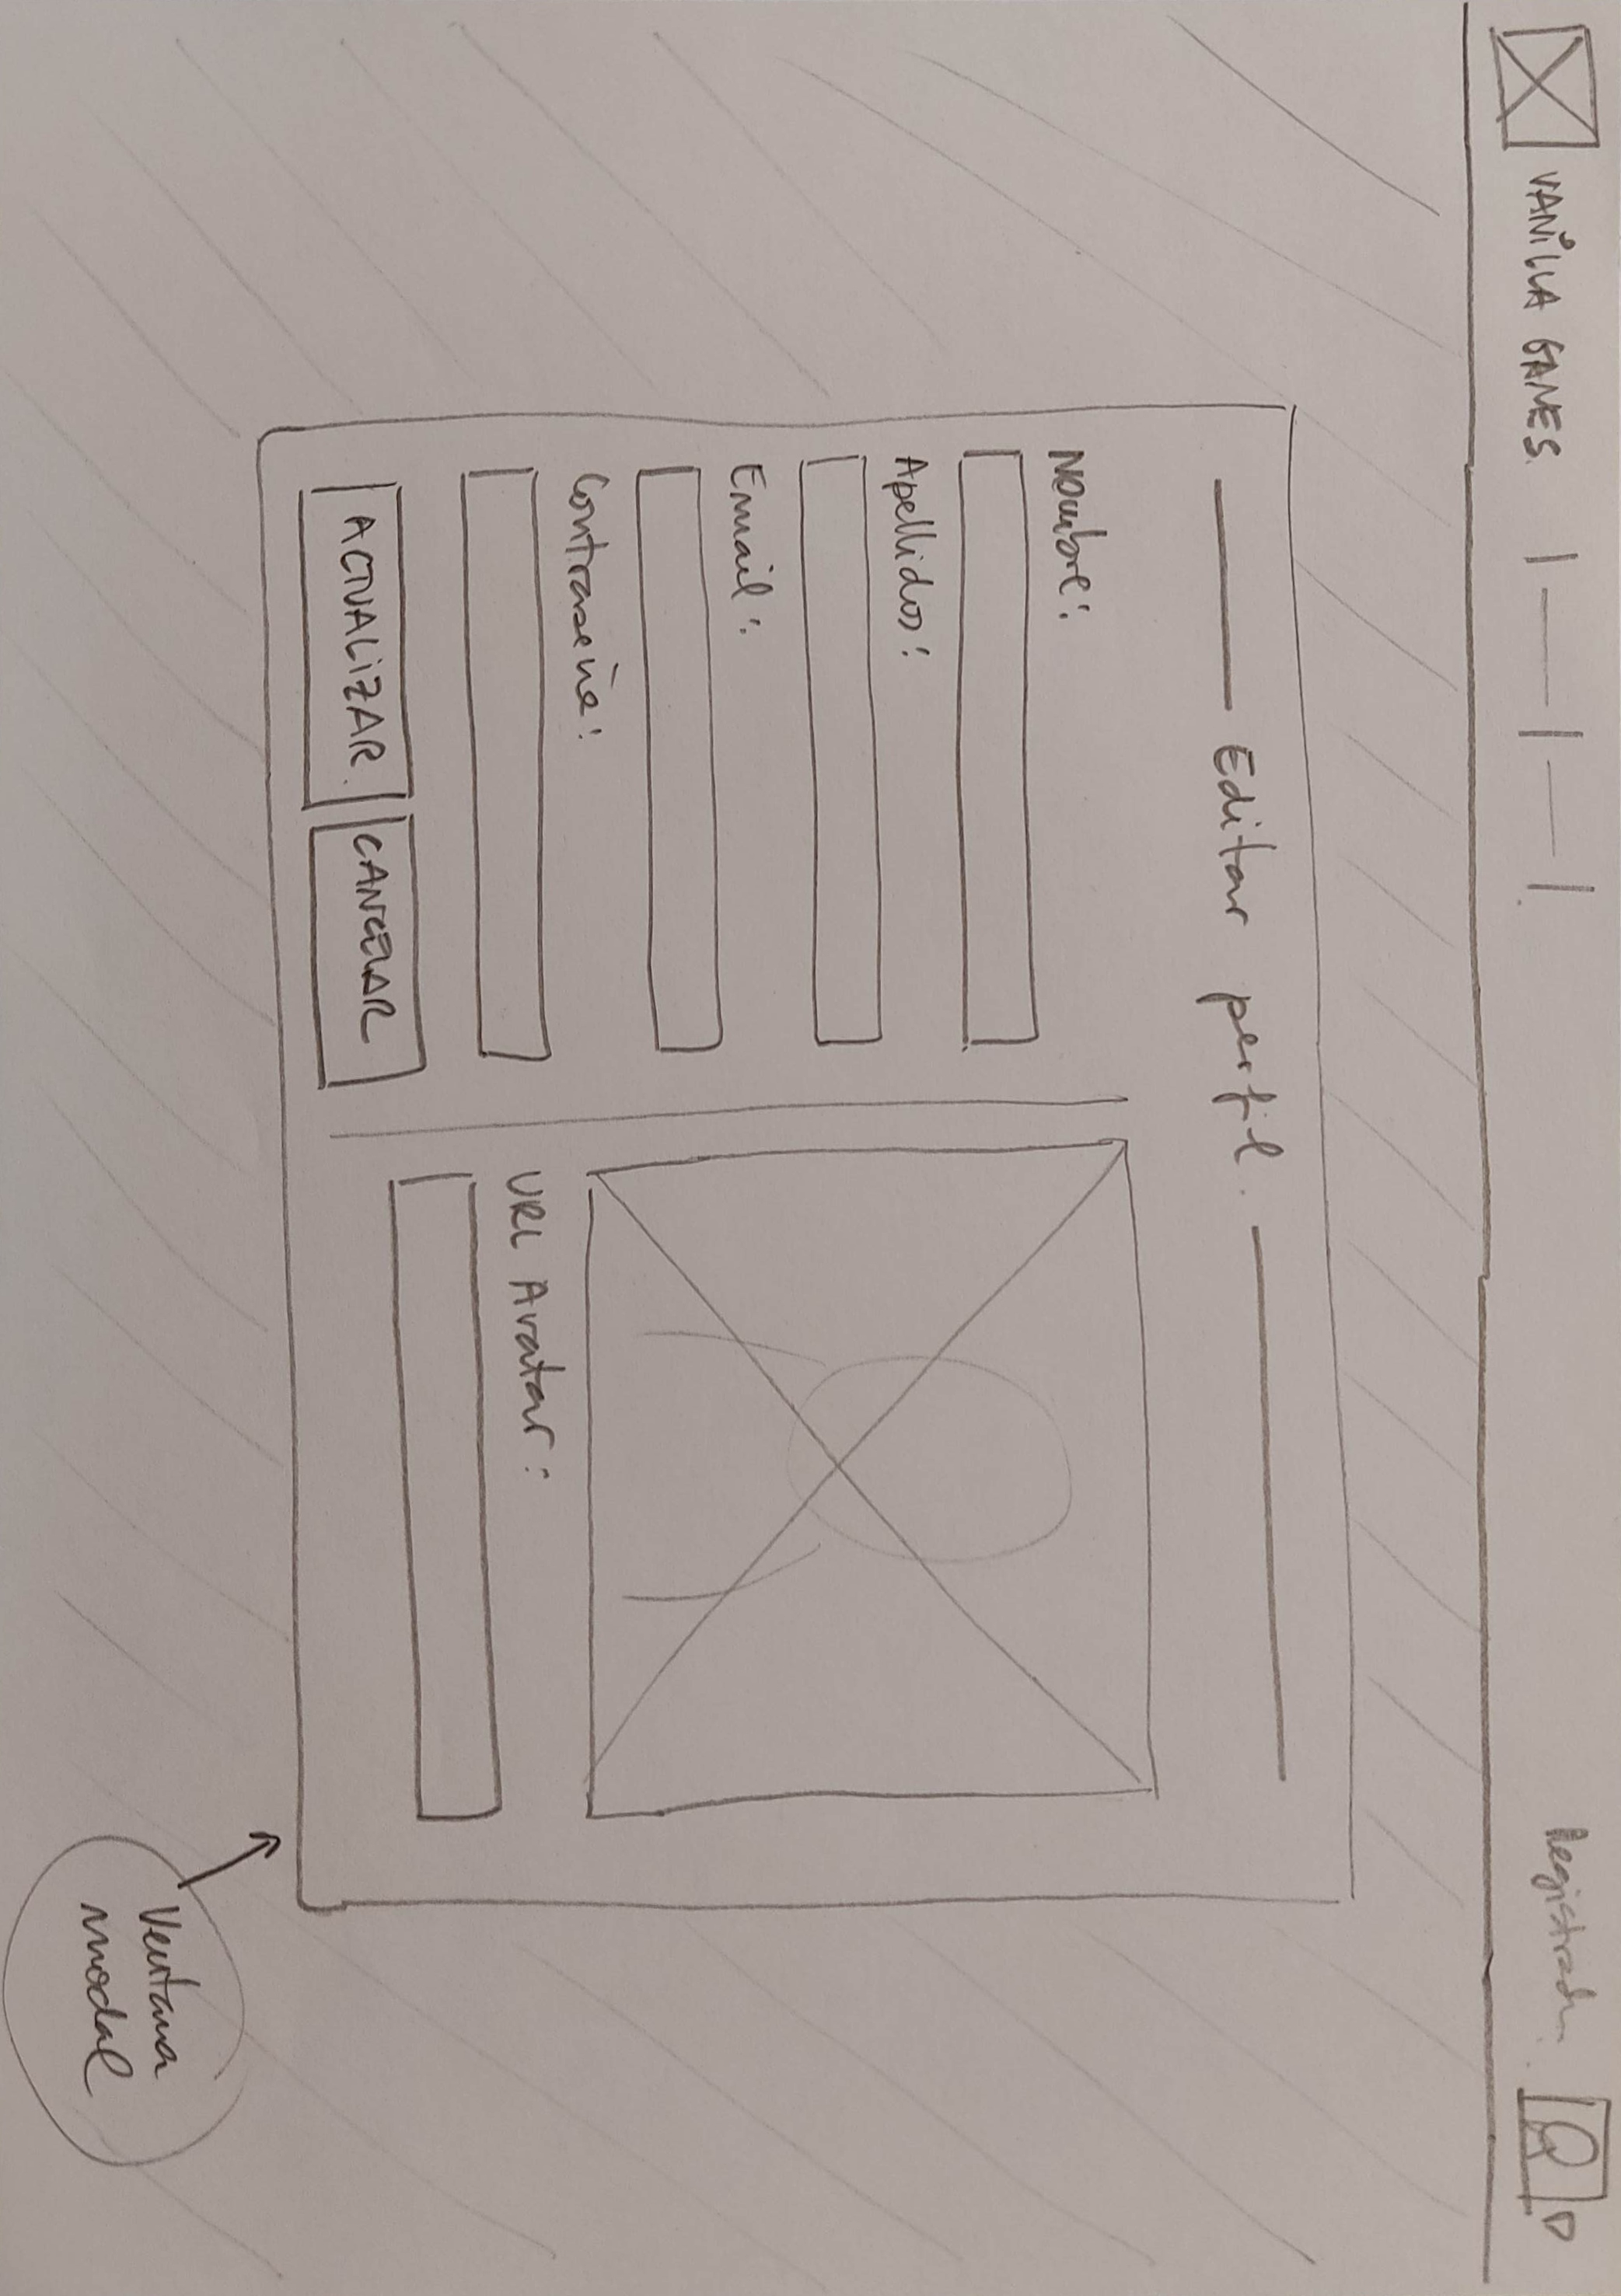 VANILLA GAMES.
Registrado
Editar perfil.
Nombre:
Apellidos:
Email:
Contraseña:
URL Avatar:
ACTUALIZAR.
CANCELAR
Ventana
modal